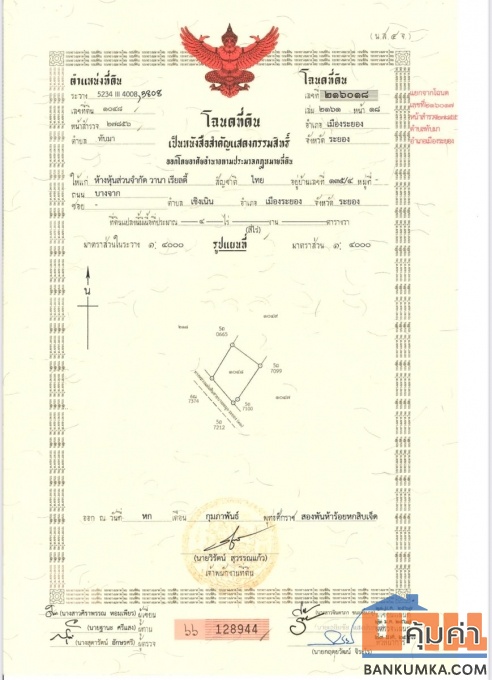 (น.ส. ๔ จ.)
ตำแหน่งที่ดิน
ระวาง 5234 III 4008
เลขที่ดิน ๑๐๔๘
หน้าสำรวจ
ตำบล ทับมา
โฉนดที่ดิน
เลขที่ ๒๑๖๐๑๘
เล่ม ๒๑๖๑ หน้า ๑๘
อำเภอ เมืองระยอง
จังหวัด ระยอง
แยกจากโฉนด
หน้าสำรวจ
ตำบลทับมา
อำเภอเมืองระยอง
โฉนดที่ดิน
เป็นหนังสือสำคัญแสดงกรรมสิทธิ์
ออกโดยอาศัยอำนาจตามประมวลกฎหมายที่ดิน
ให้แก่ ห้างหุ้นส่วนจำกัด วานา เรียลตี้ สัญชาติ ไทย อยู่บ้านเลขที่ ๑๓๕/๔ หมู่ที่ -
ถนน บางจาก
ซอย - ตำบล เชิงเนิน อำเภอ เมืองระยอง จังหวัด ระยอง
ที่ดินแปลงนี้มีเนื้อที่ประมาณ ๔ ไร่ งาน ตารางวา
(สี่ไร่)
มาตราส่วนในระวาง ๑: ๔๐๐๐ รูปแผนที่ มาตราส่วน ๑: ๔๐๐๐
น
๑๐๔๗
วอ
0665
๑๐๔๘
วอ
7099
๑๐๔๗
7314
วอ
7100
วอ
7212
ออก ณ วันที่ หก เดือน กุมภาพันธ์ พุทธศักราช สองพันห้าร้อยหกสิบเจ็ด
(นายวิรัตน์ สุวรรณแก้ว)
เจ้าพนักงานที่ดิน
(นางสาวศิราพรรณ หอมเพียร) ผู้เขียน
(นายฐานะ ศรีแสง) ผู้ทาน
(นางสุดารัตน์ อักษรศรี) ผู้ตรวจ
๖๖ 128944
คุ้มค่า
BANKUMKA.COM